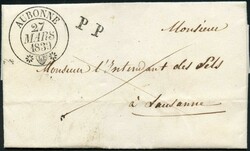 AUBONNE
27
MARS
1839
P P
Monsieur
Monsieur l'Intendant des Sels
à Lausanne